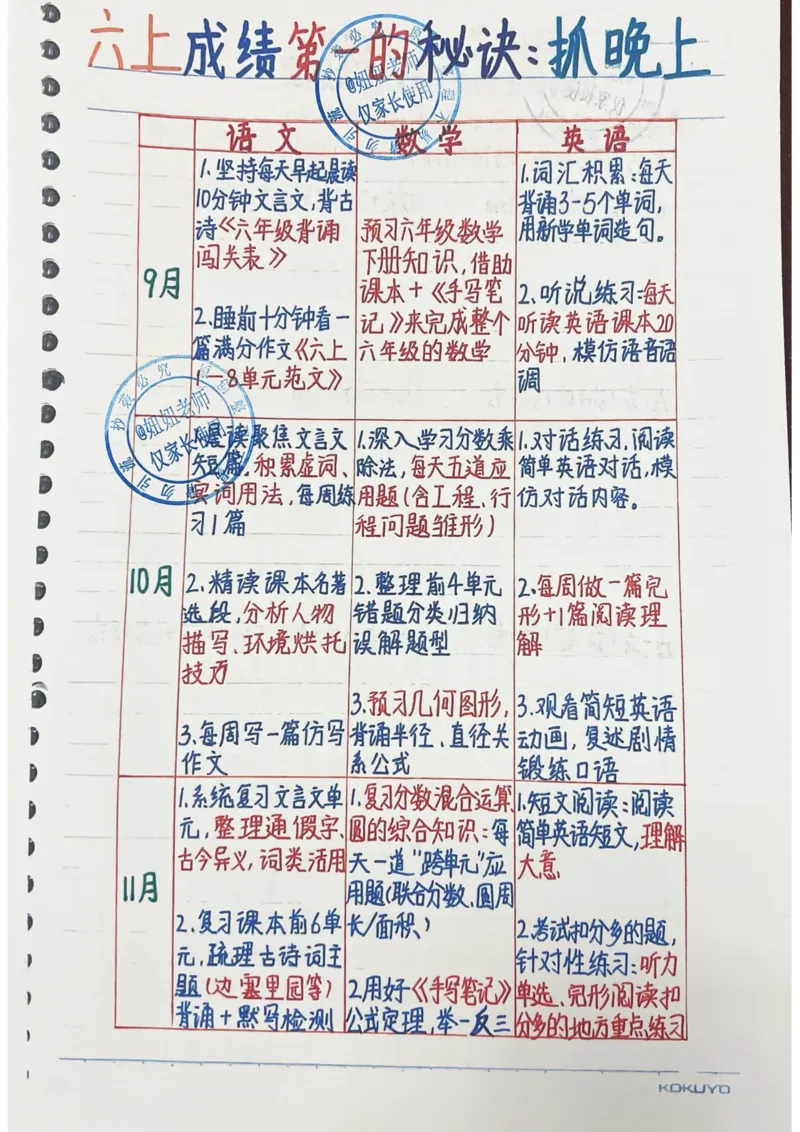 六上成绩第一的秘诀:抓晚上
@妞妞老师
仅家长使用
语文
数学
英语
9月
1.坚持每天早起晨读
10分钟文言文,背古
诗《六年级背诵
闯关表》
2.睡前十分钟看一
篇满分作文《六上
1-8单元范文》
预习六年级数学
下册知识,借助
课本+《手写笔
记》来完成整个
六年级的数学
1.词汇积累:每天
背诵3-5个单词,
用新学单词造句。
2.听说练习:每天
听读英语课本20
分钟,模仿语音语
调
@妞妞老师
仅家长使用
10月
读聚焦文言文
短篇,积累虚词、
实词用法,每周练
习1篇
2.精读课本名著
选段,分析人物
描写、环境烘托
技万
3.每周写一篇仿写
作文
1.深入学习分数乘
除法,每天五道应
用题(含工程、行
程问题雏形)
2.整理前4单元
错题分类归纳
误解题型
3.预习几何图形,
背诵半径、直径关
系公式
1.对话练习,阅读
简单英语对话,模
仿对话内容。
2.每周做一篇完
形+1篇阅读理
解
3.观看简短英语
动画,复述剧情
锻练口语
11月
1.系统复习文言文单
元,整理通假字、
古今异义,词类活用
2.复习课本前6单
元,疏理古诗词主
题(边塞里园等)
背诵+默写检测
1.复习分数混合运算
圆的综合知识:每
天一道"跨单元"应
用题(联合分数、圆周
长/面积、)
2.用好《手写笔记》
公式定理,举一反三
1.短文阅读:阅读
简单英语短文,理解
大意
2.考试扣分多的题,
针对性练习:听力
单选、完形阅读扣
分多的地方重点练习
KOKUYO